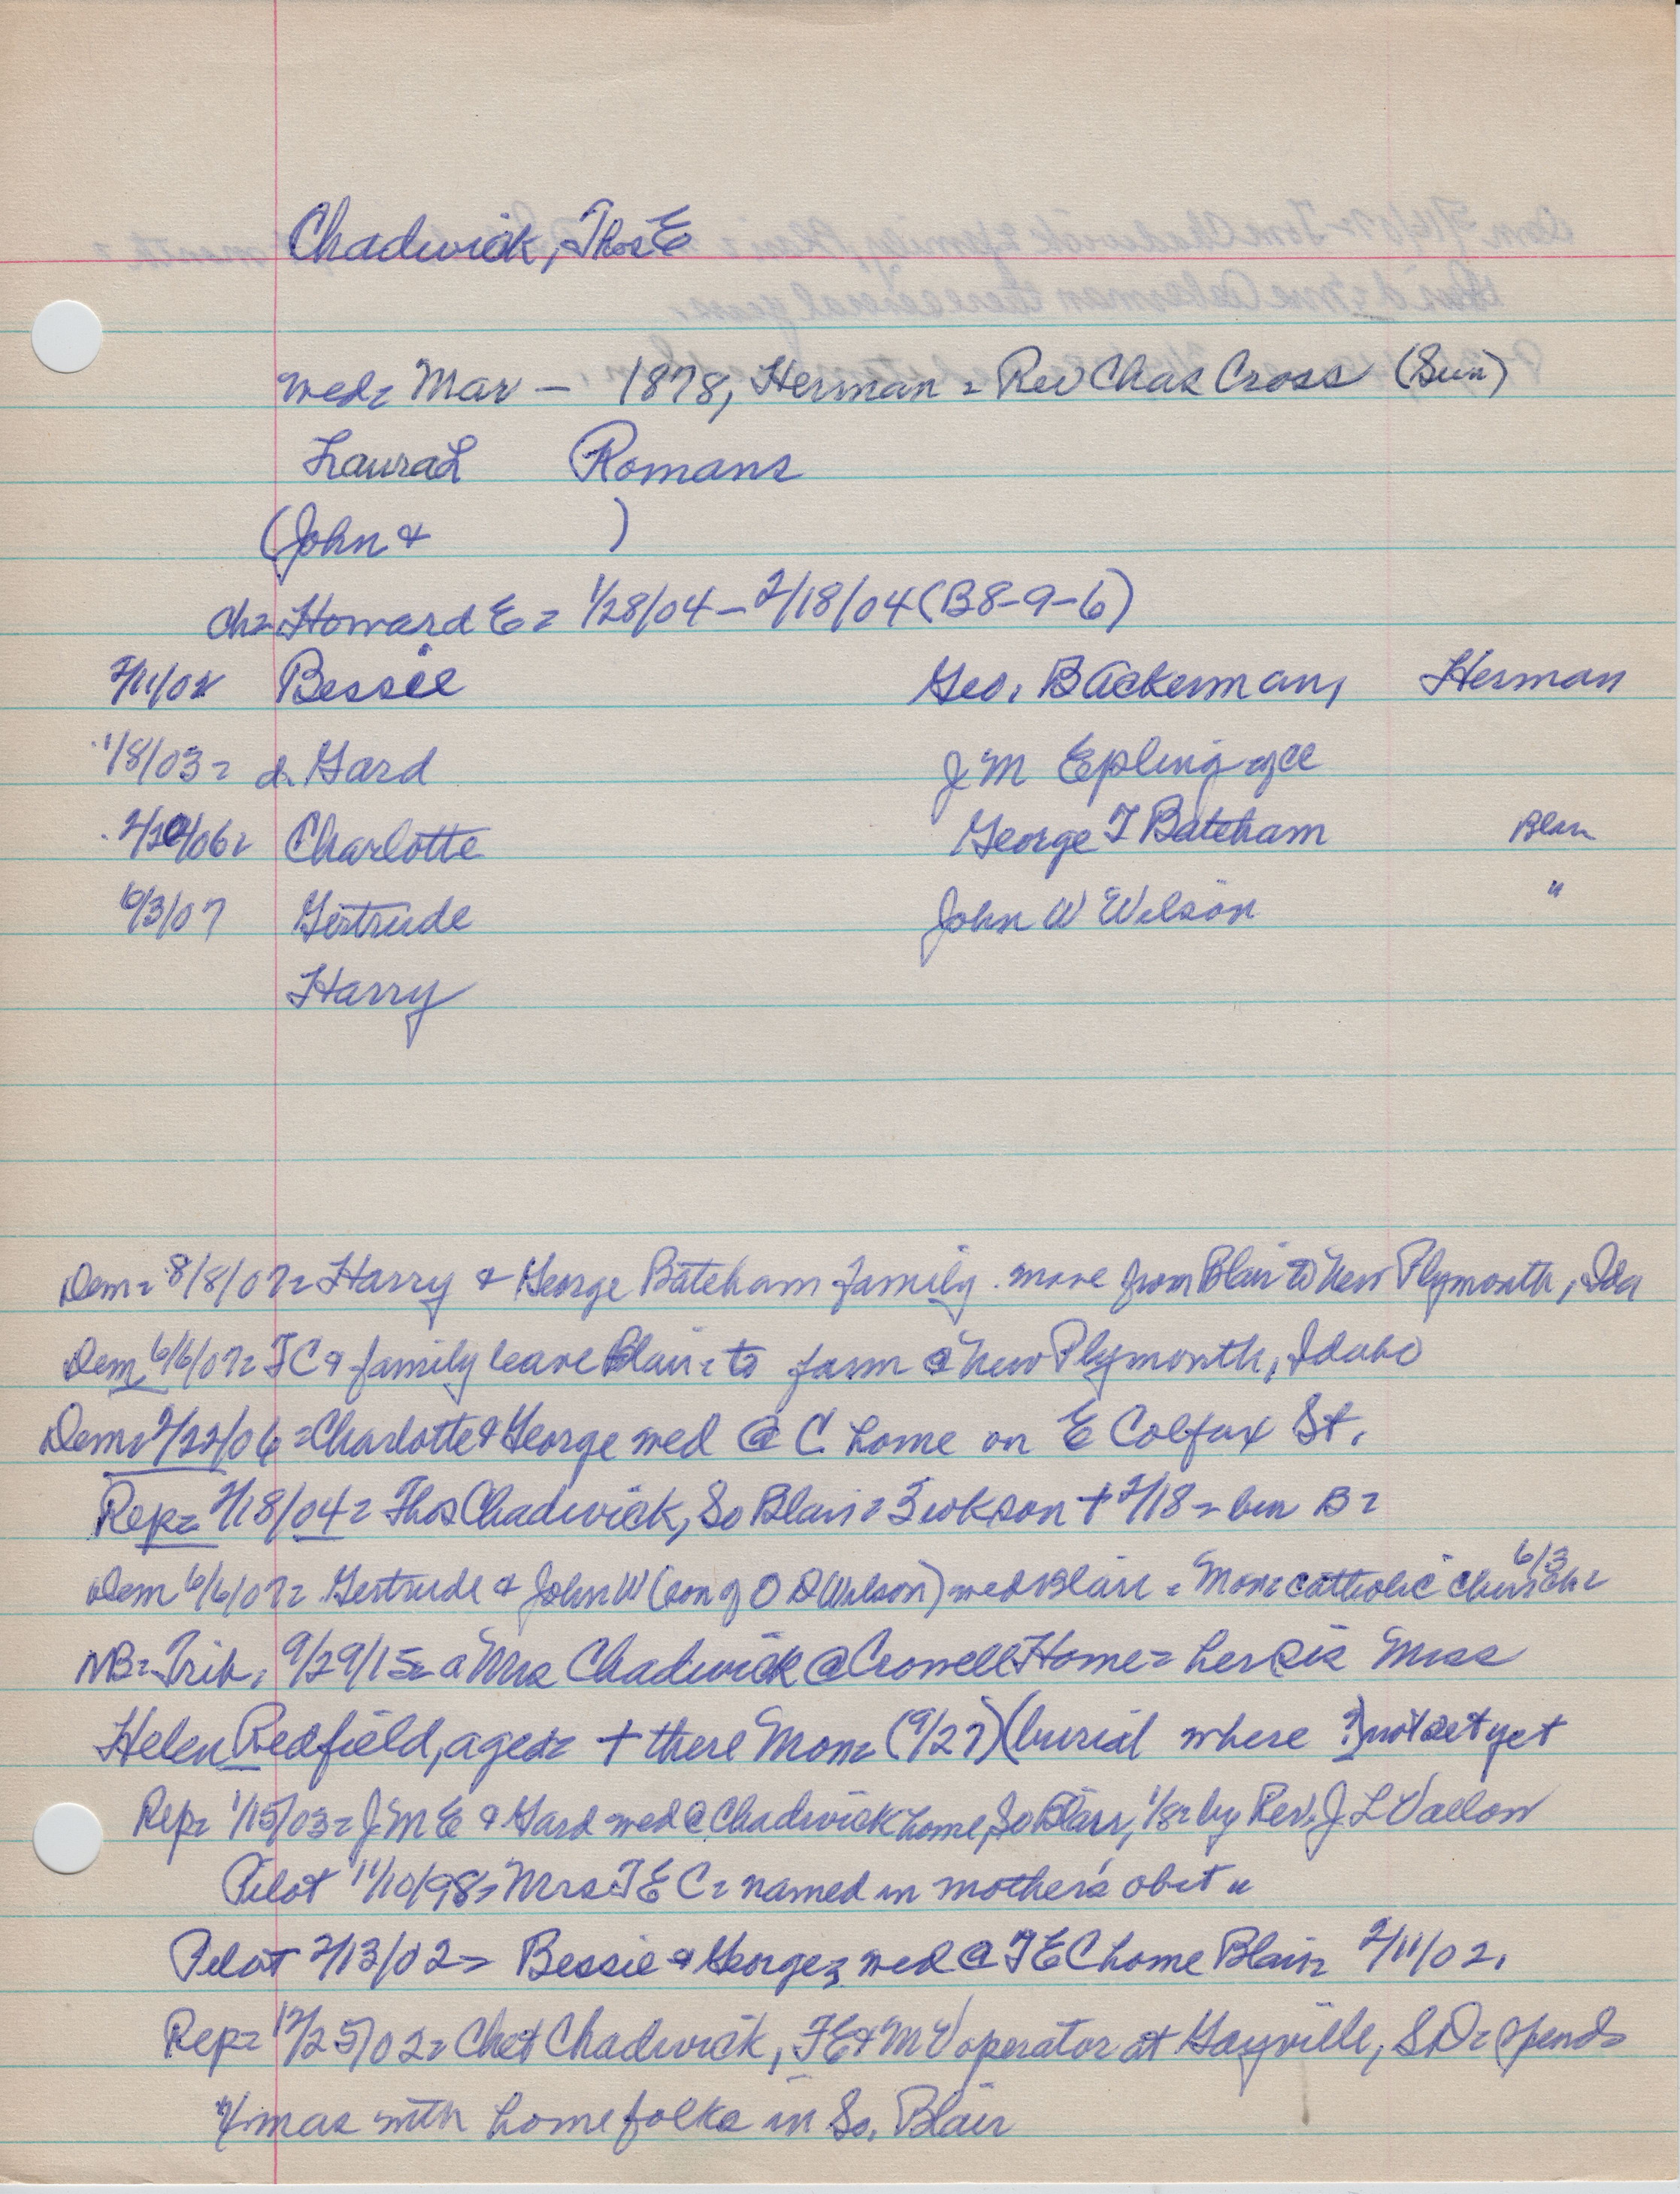 Chadwick, Thos E
wed= Mar – 1878, Herman = Rev Chas Cross (Sun)
Laura L Romans
(John & )
ch= Howard E = 1/28/04 – 2/18/04 (B8-9-6)
2/11/02 Bessie Geo. B Ackerman, Herman
1/8/03= d. Gard J M Epling
2/20/06= Charlotte George T Bateham Blair
6/3/07 Gertrude John W Wilson "
Harry
Dem= 8/8/07= Harry & George Bateham family move from Blair to New Plymouth, Ida
Dem 6/6/07= TC & family leave Blair = to farm @ New Plymouth, Idaho
Dem= 2/22/06 = Charlotte & George wed @ C home on E Colfax St.
Rep= 2/18/04= Thos Chadwick, So Blair = 3 wk son + 2/18 = bur B=
Dem 6/6/07= Gertrude & John W (son of O D Wilson) wed Blair = Mon= Catholic Church= 6/3
NB= Trib. 9/29/15= a Mrs Chadwick @ Crowell Home = her sis Miss
Helen Redfield, aged= + there Mon= (9/27) (burial where ?) not set yet
Rep= 1/15/03= J M E & Gard wed @ Chadwick home, So Blair, 1/8= by Rev. J L Vallow
Pilot 11/10/98= Mrs T E C= named in mother's obit "
Pilot 2/13/02= Bessie & George= wed @ T E C home Blair= 2/11/02.
Rep= 12/25/02= Chet Chadwick, F E & M V operator at Gayville, S D= spends
Xmas with home folks in So. Blair